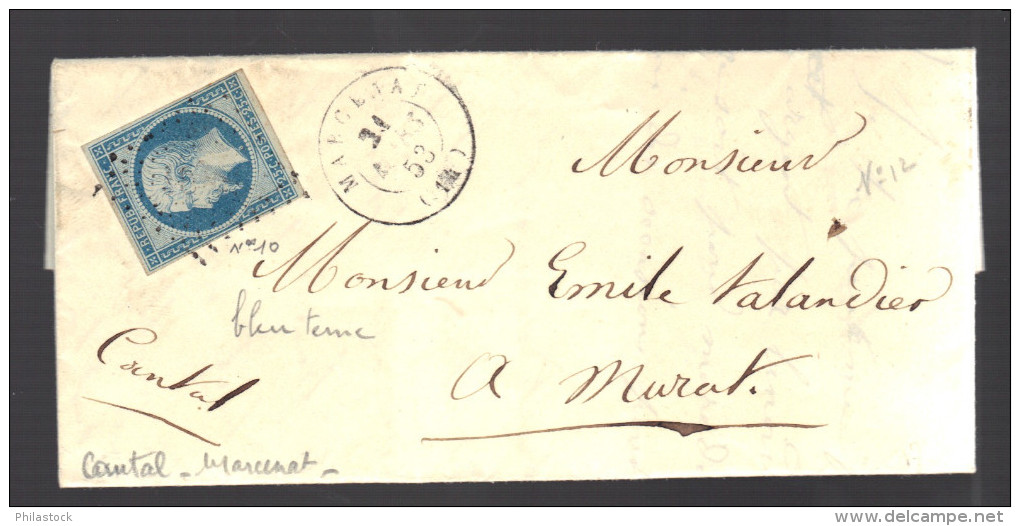 REPUB. FRANC.
25c. POSTES. 25c.
MARCENAT
21
53
(14)
Monsieur
N° 12
N° 10
Monsieur Emile Talandier
bleu terne
Cantal
A Murat.
Cantal - Marcenat -
Philastock
www.delcampe.net